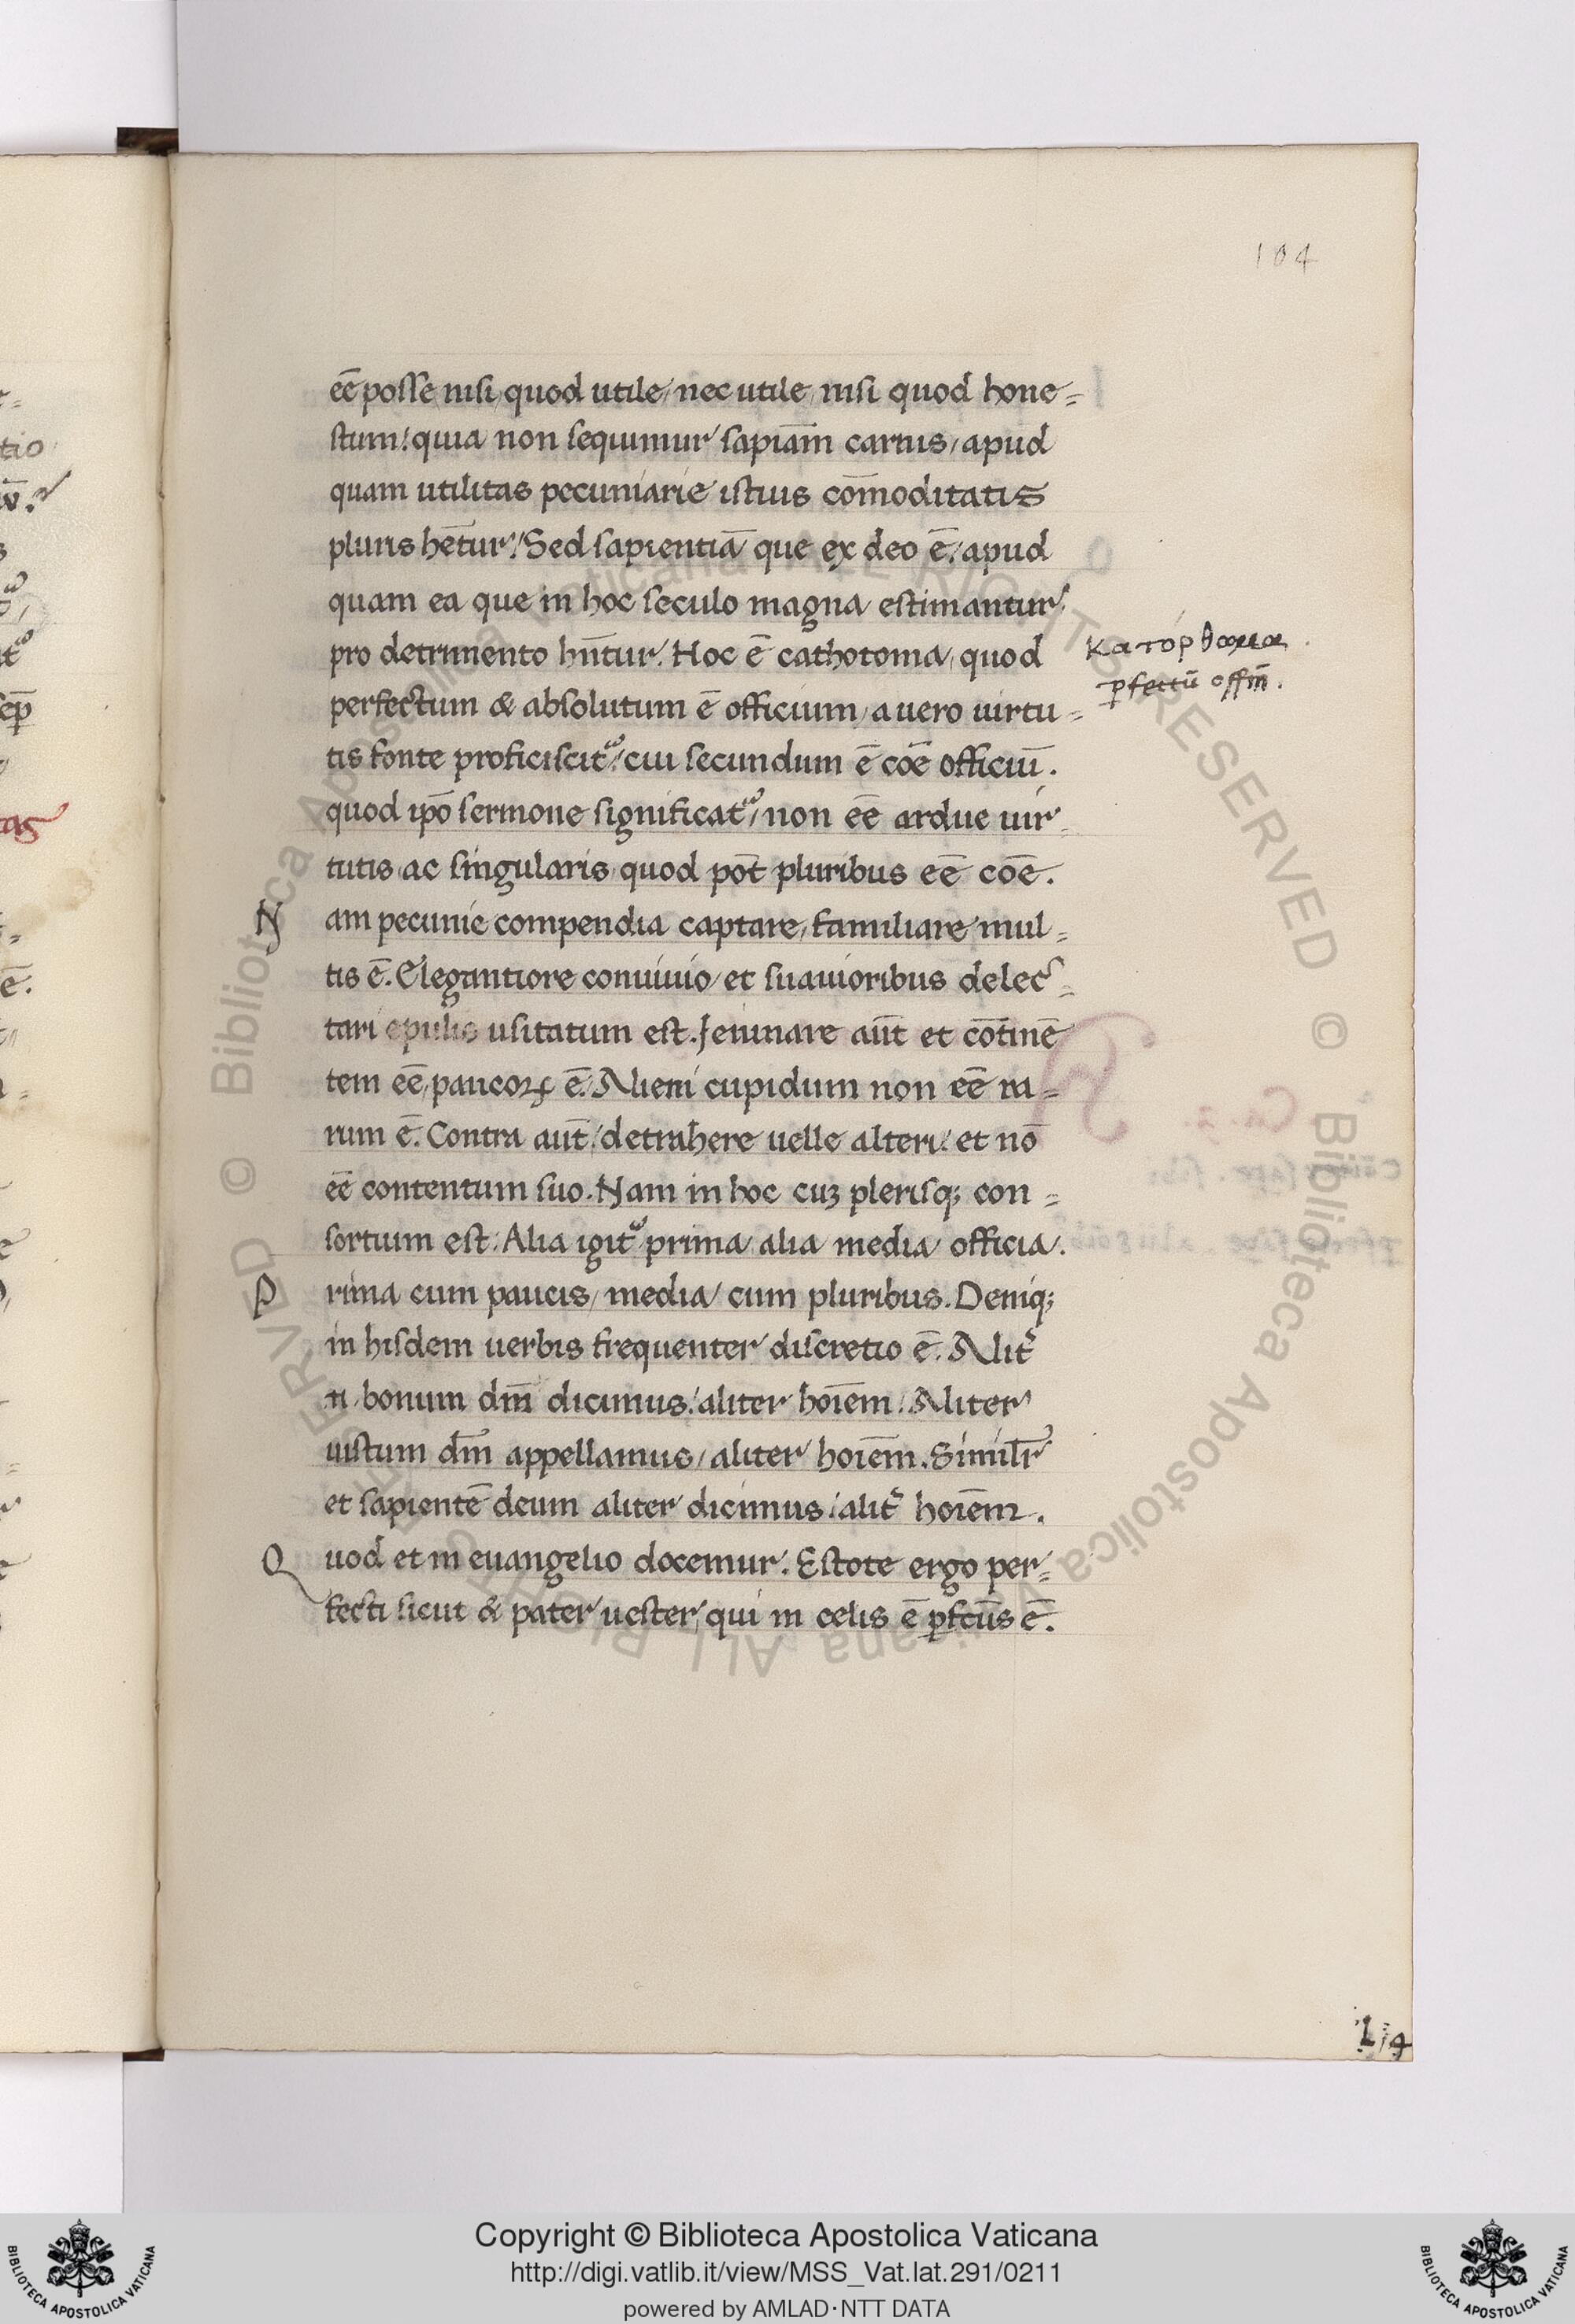 104
eē posse nisi quod utile, nec utile, nisi quod hone=
stum: quia non sequimur sapiām carnis, apud
quam utilitas pecuniarie istius cōmoditatis
pluris hētur. Sed sapientiā que ex deo ē: apud
quam ea que in hoc seculo magna estimantur
pro detrimento hn̄tur. Hoc ē cathotoma, quod
κατόρθωμα.
ꝑfectū offm̄.
perfectum & absolutum ē officium, a uero uirtu=
tis fonte proficiscit᷑: cui secundum ē cōe officiū.
quod ip̄o sermone significat᷑, non eē ardue uir=
tutis ac singularis, quod pōt pluribus eē cōe.
Nam pecunie compendia captare, familiare mul=
tis ē. Elegantiore conuiuio, et suauioribus delec=
tari epulis usitatum est. Ieiunare aūt et cōtinē
tem eē, paucoꝝ ē. Alieni cupidum non eē ra=
rum ē. Contra aūt, detrahere uelle alteri: et nō
eē contentum suo. Nam in hoc cuꝫ plerisqꝫ con=
sortium est. Alia igit᷑ prima alia media officia.
Prima cum paucis, media cum pluribus. Deniqꝫ
in hisdem uerbis frequenter discretio ē. Alit᷑
n. bonum dm̄ dicimus: aliter hoīem. Aliter
iustum dm̄ appellamus, aliter hoīem. Simil̄r
et sapientē deum aliter dicimus: alit᷑ hoīem.
Quod et in euangelio docemur. Estote ergo per=
fecti sicut & pater uester, qui in celis ē ꝑfc̄tus ē.
Copyright © Biblioteca Apostolica Vaticana
http://digi.vatlib.it/view/MSS_Vat.lat.291/0211
powered by AMLAD·NTT DATA
BIBLIOTECA APOSTOLICA VATICANA
BIBLIOTECA APOSTOLICA VATICANA